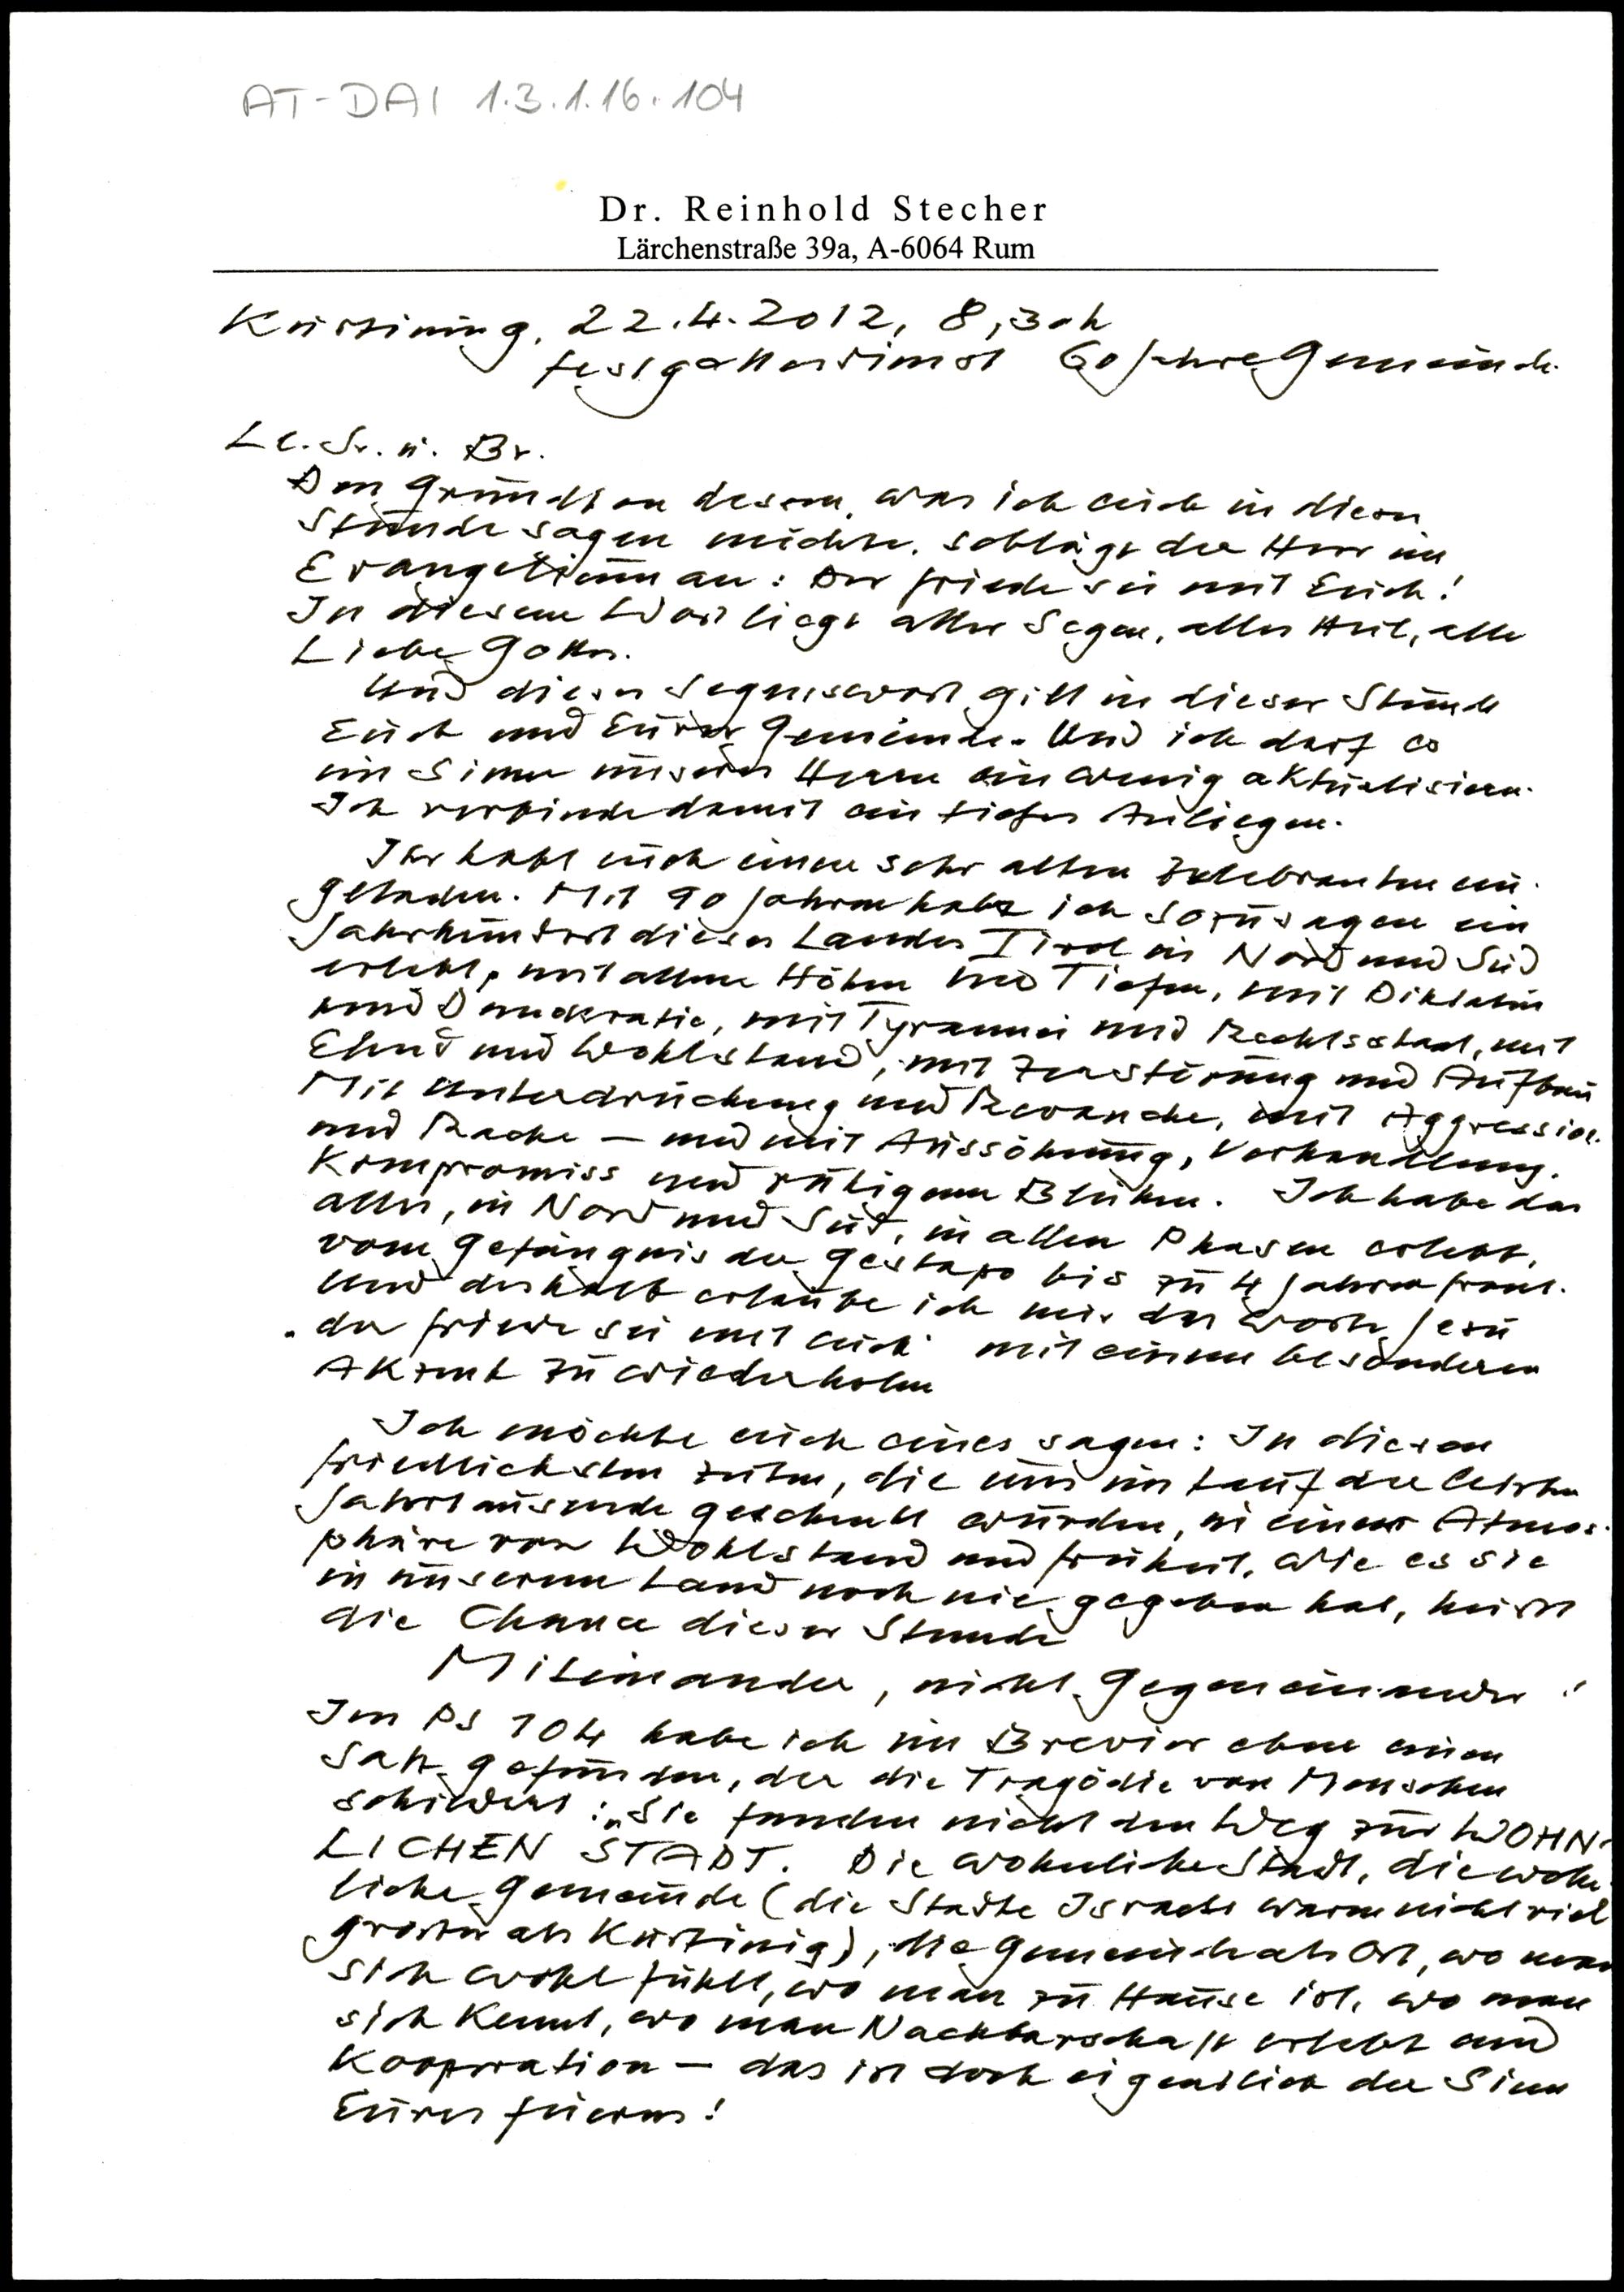 AT-DAI 1.3.1.16.104
Dr. Reinhold Stecher
Lärchenstraße 39a, A-6064 Rum
Kurtinig, 22.4.2012, 8,30h
Festgottesdienst 60 Jahre Gemeinde
Lb. Sr. u. Br.
Den Grundton dessen, was ich euch in dieser
Stunde sagen möchte, schlägt der Herr im
Evangelium an: Der Friede sei mit Euch!
In diesem Wort liegt aller Segen, alles Heil, alle
Liebe Gottes.
Und dieses Segenswort gilt in dieser Stunde
Euch und Eurer Gemeinde. Und ich darf es
im Sinne unseres Herrn ein wenig aktualisieren.
Ich verbinde damit ein tiefes Anliegen.
Ihr habt euch einen sehr alten Zelebranten ein-
geladen. Mit 90 Jahren habe ich sozusagen ein
Jahrhundert dieses Landes Tirol in Nord und Süd
erlebt, mit allen Höhen und Tiefen, mit Diktatur
und Demokratie, mit Tyrannei und Rechtsstaat, mit
Elend und Wohlstand, mit Zerstörung und Aufbau
Mit Unterdrückung und Revanche, mit Aggression
und Rache – und mit Aussöhnung, Verhandlung,
Kompromiss und ruhigem Blühen. Ich habe das
alles, in Nord und Süd, in allen Phasen erlebt,
vom Gefängnis der Gestapo bis zu 4 Jahren Front.
Und deshalb erlaube ich mir das Wort Jesu
"der Friede sei mit euch" mit einem besonderen
Akzent zu wiederholen
Ich möchte euch eines sagen: In diesen
friedlichsten Zeiten, die uns im Lauf der letzten
Jahrtausende geschenkt wurden, in einer Atmos-
phäre von Wohlstand und Freiheit, wie es sie
in unserem Land noch nie gegeben hat, heisst
die Chance dieser Stunde
Miteinander, nicht Gegeneinander!
Im Ps 104 habe ich im Brevier eben einen
Satz gefunden, der die Tragödie von Menschen
schildert: "Sie fanden nicht den Weg zur WOHN-
LICHEN STADT. Die wohnliche Stadt, die wohn-
liche Gemeinde (die Städte Israels waren nicht viel
grösser als Kurtinig), die Gemeinde als Ort, wo man
sich wohl fühlt, wo man zu Hause ist, wo man
sich kennt, wo man Nachbarschaft erlebt und
Kooperation – das ist doch eigentlich der Sinn
Eures Feierns!